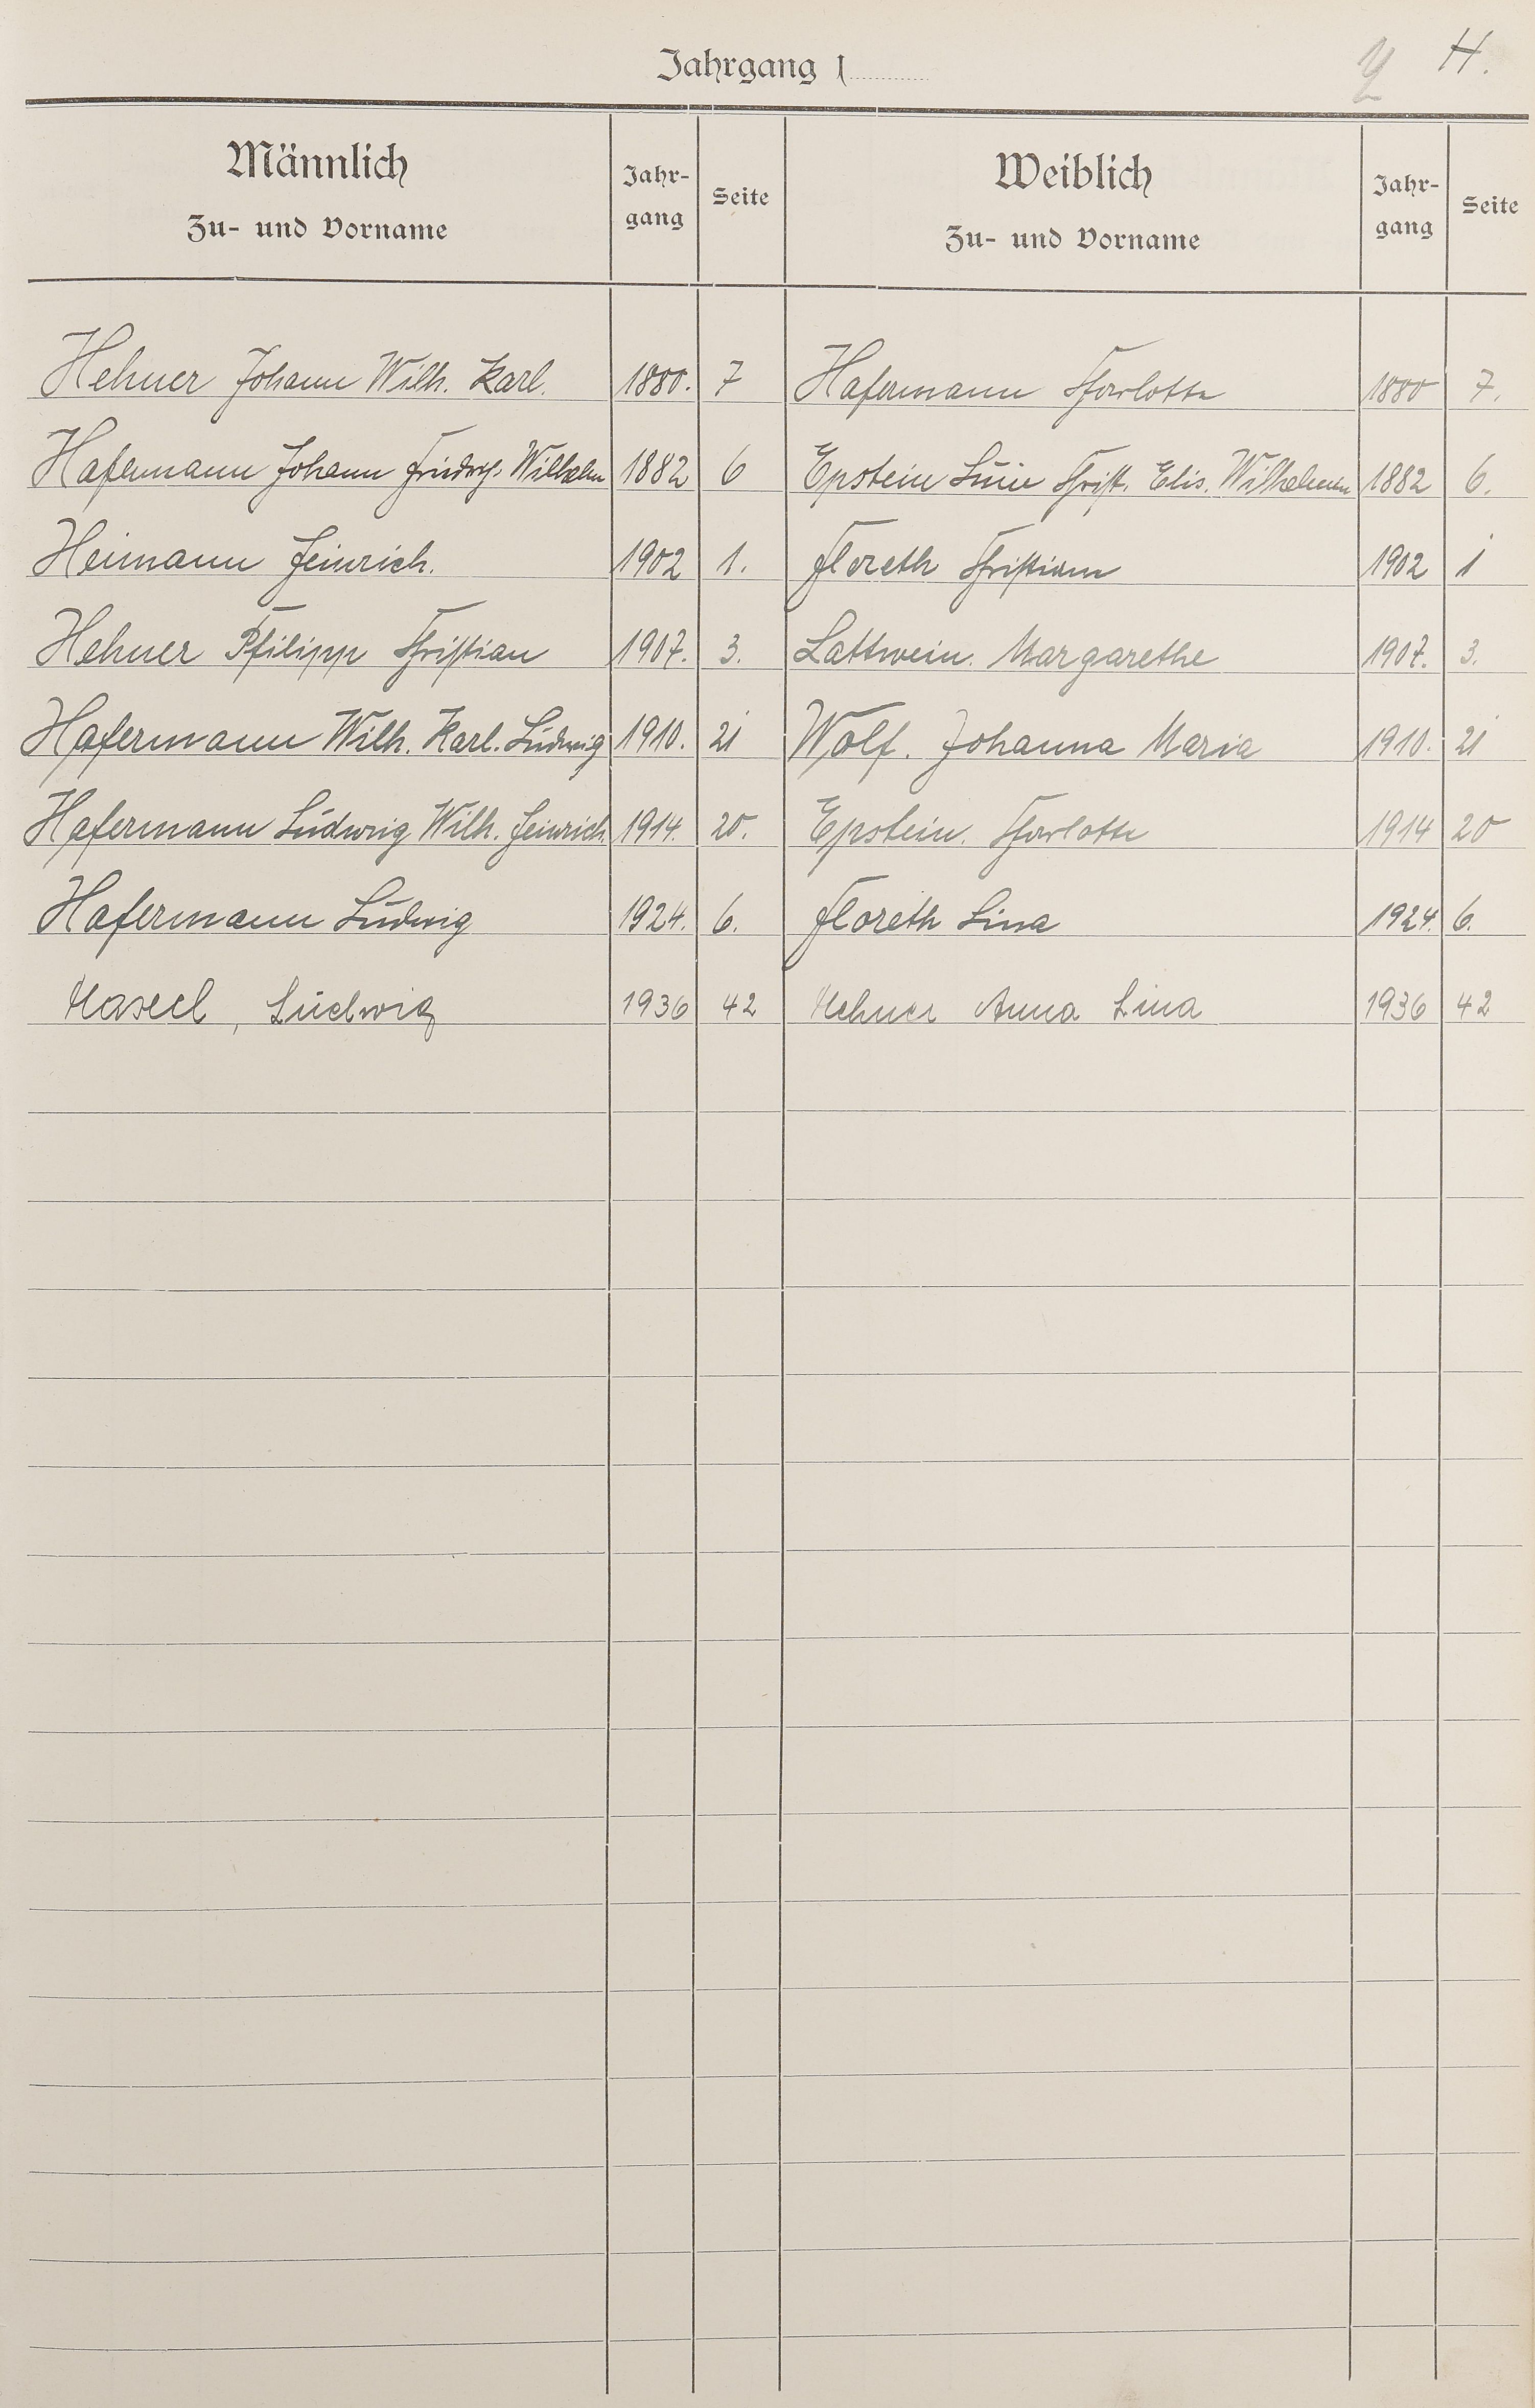 Jahrgang 1
H.
Männlich
Zu- und Vorname
Jahr-
gang
Seite
Weiblich
Zu- und Vorname
Jahr-
gang
Seite
Hehner Johann Wilh. Karl. 1880. 7 Hafermann Charlotte 1880 7.
Hafermann Johann Friedrich Wilhelm 1882 6 Epstein Luise Christ. Elis. Wilhelmine 1882 6.
Heimann Heinrich. 1902 1. Floreth Christiane 1902 1
Hehner Philipp Christian 1907. 3. Lattwein. Margarethe 1907. 3.
Hafermann Wilh. Karl. Ludwig 1910. 21 Wolf. Johanna Maria 1910. 21
Hafermann Ludwig Wilh. Heinrich. 1914. 20. Epstein. Charlotte 1914 20
Hafermann Ludwig 1924. 6. Floreth Lina 1924. 6.
Ludwig 1936 42 Hehner Anna Lina 1936 42